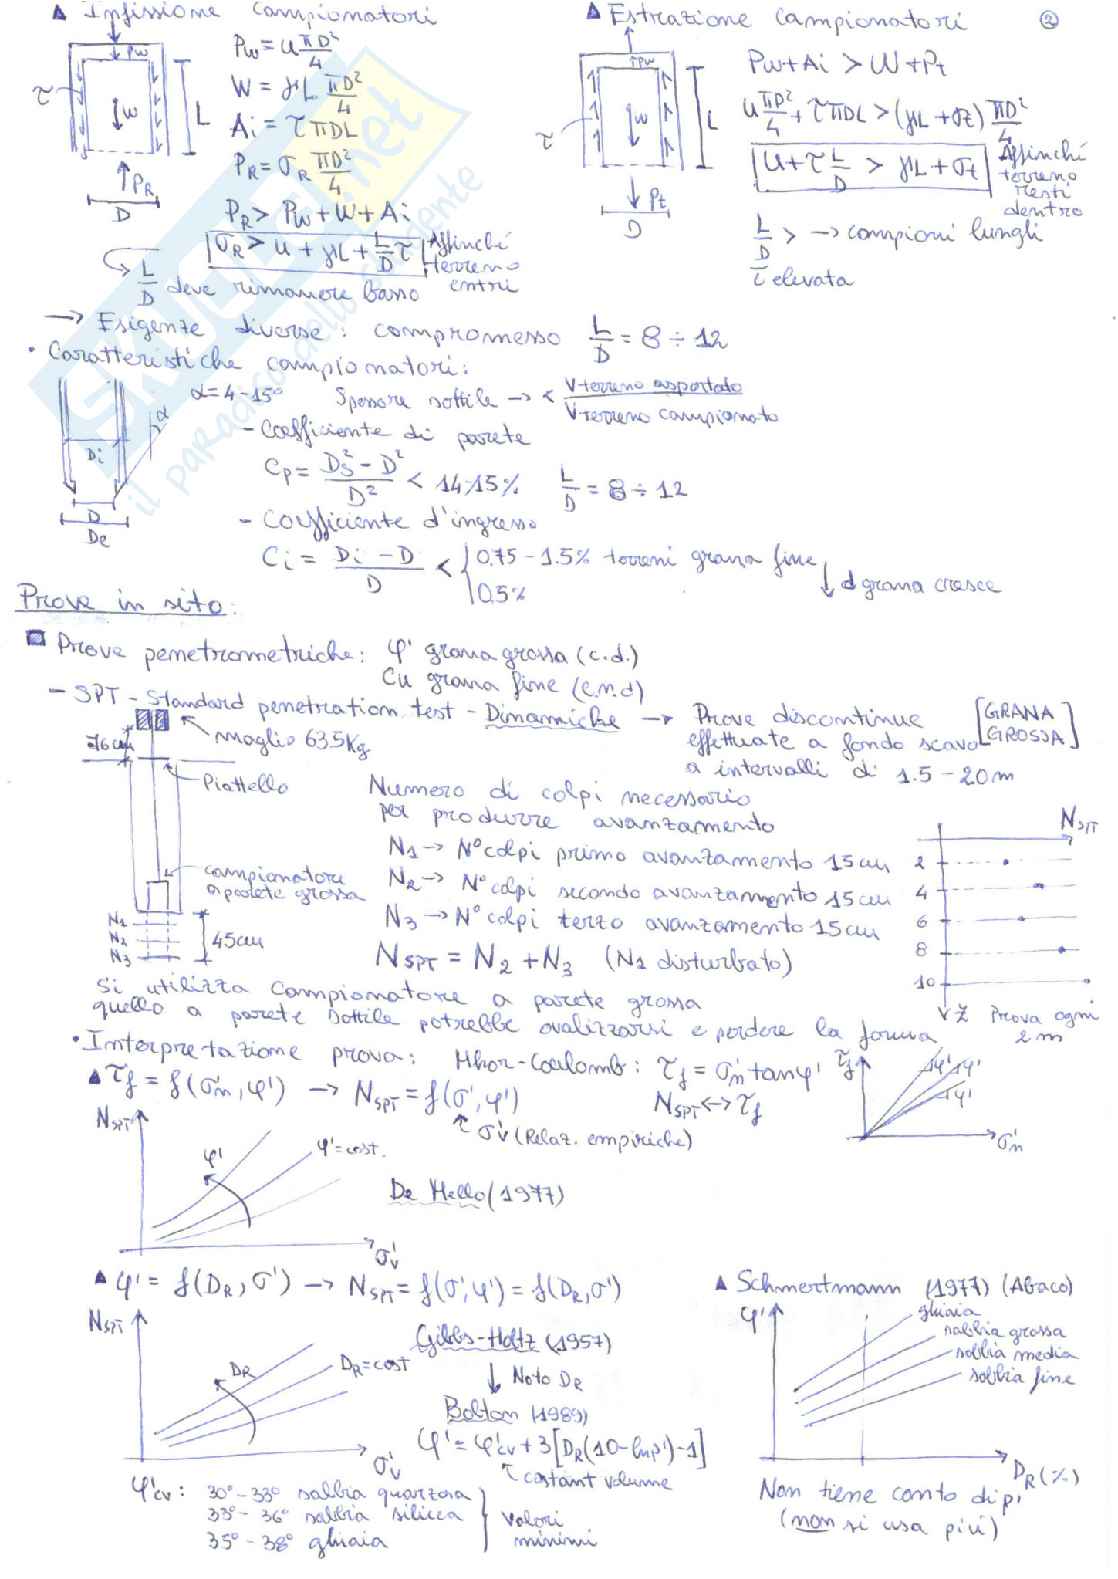 ▲ Infissione campionatori
Pw = u πD²/4
W = γL πD²/4
Ai = τ πDL
PR = σR πD²/4
PR > Pw + W + Ai
σR > u + γL + L/D τ
Affinché terreno entri
L/D deve rimanere basso
Pw
τ
W
L
PR
D
▲ Estrazione campionatori
2
Pw + Ai > W + Pt
u πD²/4 + τπDL > (γL + σt) πD²/4
u + τ L/D > γL + σt
Affinché terreno resti dentro
L/D > → campioni lunghi
τ elevata
Pw
τ
W
L
Pt
D
→ Esigenze diverse: compromesso L/D = 8 ÷ 12
• Caratteristiche campionatori:
α = 4-15° Spessore sottile → < V terreno asportato / V terreno campionato
- Coefficiente di parete
Cp = (Ds² - D²)/D² < 14-15% L/D = 8 ÷ 12
- Coefficiente d'ingresso
Ci = (Di - D)/D < { 0,75 - 1.5% terreni grana fine
0,5%
↓ d grana cresce
α
Di
D
De
Prove in sito:
Prove penetrometriche: φ' grana grossa (c.d.)
Cu grana fine (c.n.d)
- SPT - Standard penetration test - Dinamiche → Prove discontinue [GRANA GROSSA]
effettuate a fondo scavo
a intervalli di 1.5 - 20m
76cm
maglio 63.5Kg
Piattello
campionatore a parete grossa
N1
N2
N3
45cm
Numero di colpi necessario
per produrre avanzamento
N1 → N° colpi primo avanzamento 15cm
N2 → N° colpi secondo avanzamento 15cm
N3 → N° colpi terzo avanzamento 15cm
NSPT = N2 + N3 (N1 disturbato)
NSPT
2
4
6
8
10
z Prova ogni 2m
Si utilizza campionatore a parete grossa
quello a parete sottile potrebbe ovalizzarsi e perdere la forma
• Interpretazione prova: Mhor-Coulomb: τf = σ'n tanφ'
▲ τf = f(σ'n, φ') → NSPT = f(σ', φ') NSPT ↔ τf
σ'v (Relaz. empiriche)
τf
φ'
φ'
φ'
σ'n
NSPT
φ'
φ'=cost.
σ'v
De Mello (1977)
▲ φ' = f(DR, σ') → NSPT = f(σ', φ') = f(DR, σ')
NSPT
DR
DR=cost
σ'v
Gibbs-Holtz (1957)
↓ Noto DR
Bolton (1989)
φ' = φ'cv + 3[DR(10-lnp')-1]
costant volume
φ'cv: 30° - 33° sabbia quarzosa
33° - 36° sabbia silicea
35° - 38° ghiaia
valori minimi
▲ Schmertmann (1977) (Abaco)
φ'
ghiaia
sabbia grossa
sabbia media
sabbia fine
DR (%)
Non tiene conto di p'
(non si usa più)
SKUOLA.net
il paradiso dello studente